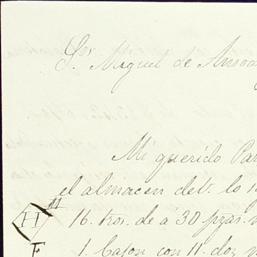 Sor
D. Miguel de
Mi querido
el almacen de V. lo
H 16. Kos. de á 30 pzas.
F 1. Cajon con 11. doz